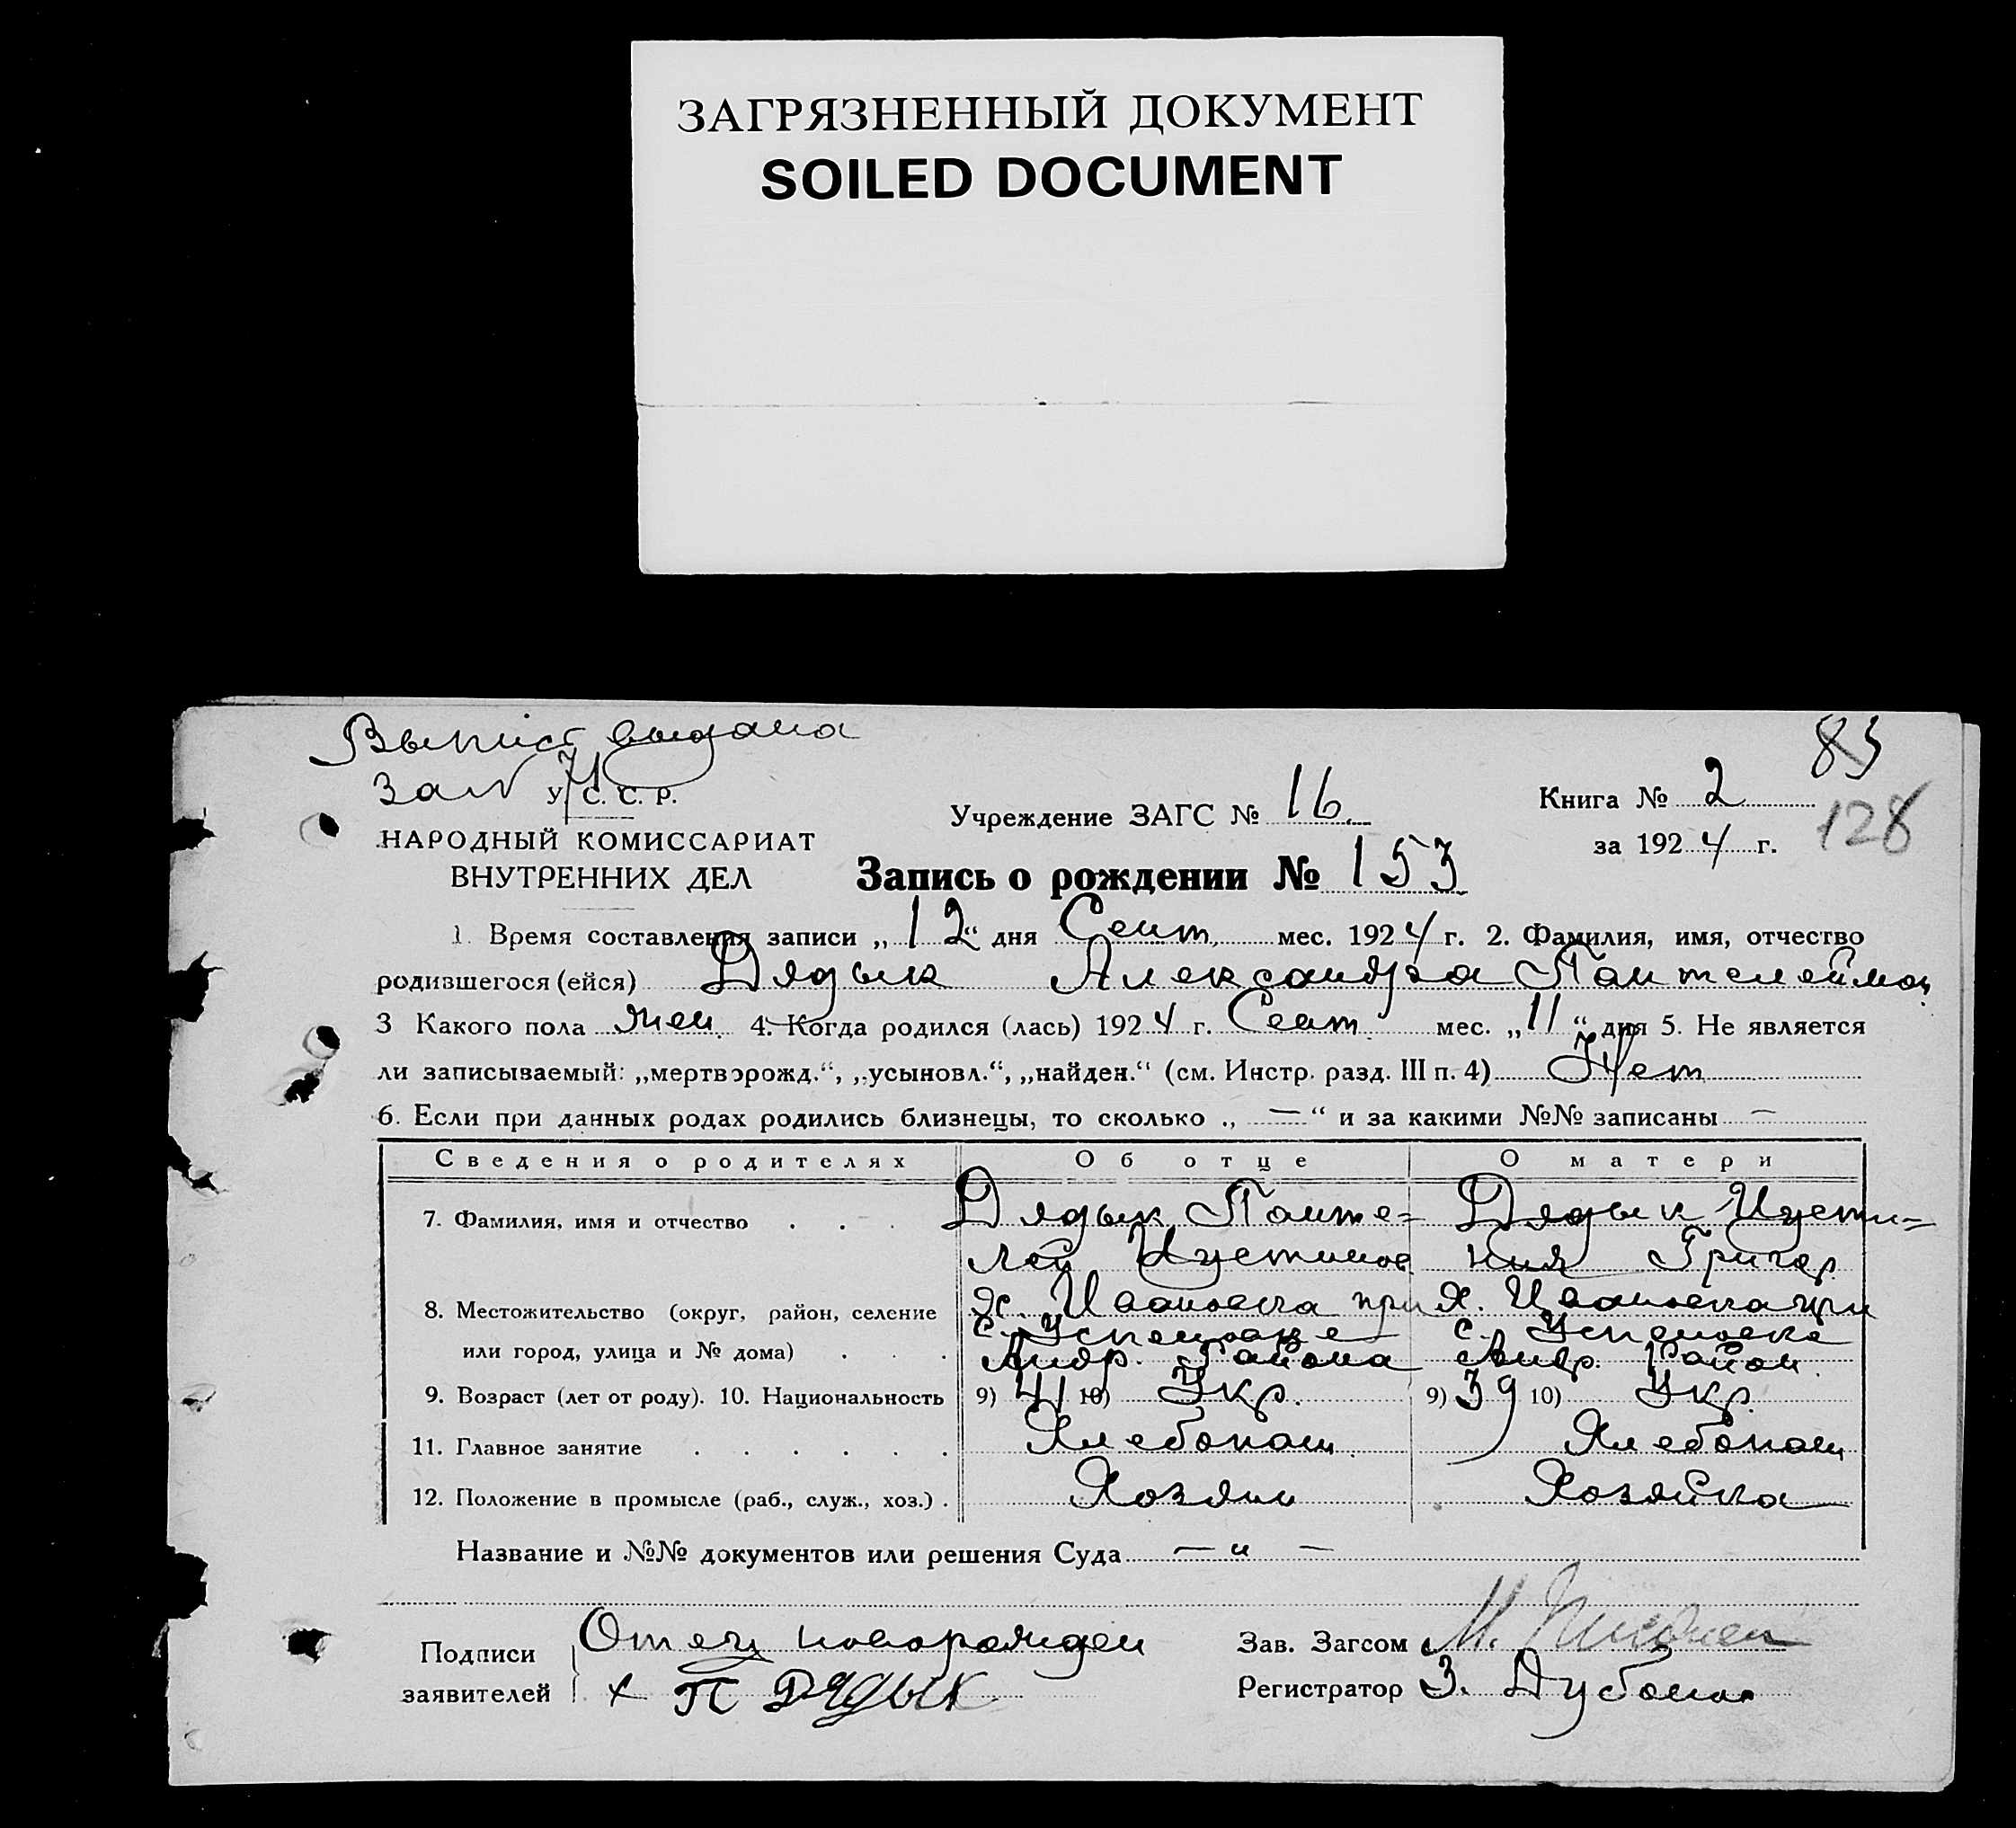 ЗАГРЯЗНЕННЫЙ ДОКУМЕНТ
SOILED DOCUMENT
Выпис выдана
за № 71
У. С. С. Р.
НАРОДНЫЙ КОМИССАРИАТ
ВНУТРЕННИХ ДЕЛ
Учреждение ЗАГС № 16.
Книга № 2
83
за 1924 г.
128
Запись о рождении № 153
1. Время составления записи „12“ дня Сент. мес. 1924 г. 2. Фамилия, имя, отчество
родившегося (ейся) Дядык Александра Пантелеймон
3 Какого пола жен. 4. Когда родился (лась) 1924 г. Сент. мес. „11“ дня 5. Не является
ли записываемый: „мертворожд.“, „усыновл.“, „найден.“ (см. Инстр. разд. III п. 4) Нет
6. Если при данных родах родились близнецы, то сколько „ — “ и за какими №№ записаны —
Сведения о родителях Об отце О матери
7. Фамилия, имя и отчество . . . Дядык Панте= Дядык Иусти=
лей Иустинов ния Григор.
8. Местожительство (округ, район, селение х. Ивановка при х. Ивановка при
с. Успеновке с. Успеновке
или город, улица и № дома) . . . Андр. Района Андр. Район.
9. Возраст (лет от роду). 10. Национальность 9) 41 10) Укр. 9) 39 10) Укр.
11. Главное занятие . . . . . Хлебопаш. Хлебопаш
12. Положение в промысле (раб., служ., хоз.) . Хозяин Хозяйка
Название и №№ документов или решения Суда — „ —
Подписи
заявителей
Отец новорожден
х П Дядык
Зав. Загсом М.
Регистратор З.